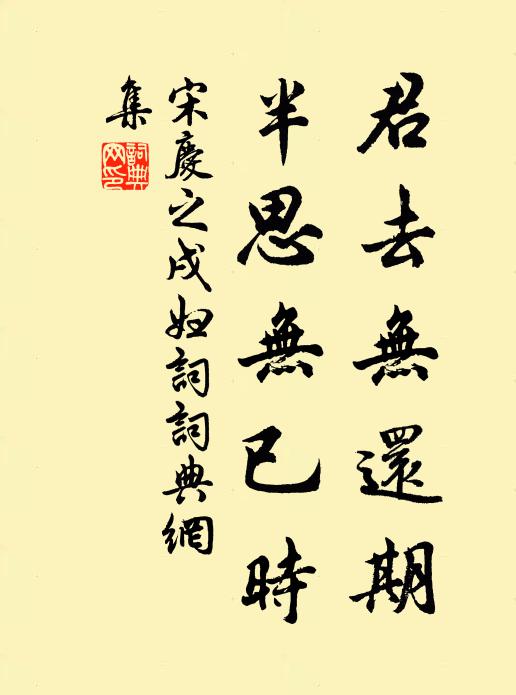 君去無還期
半思無已時
宋慶之戍婦詞詞典網
集
詞典網印